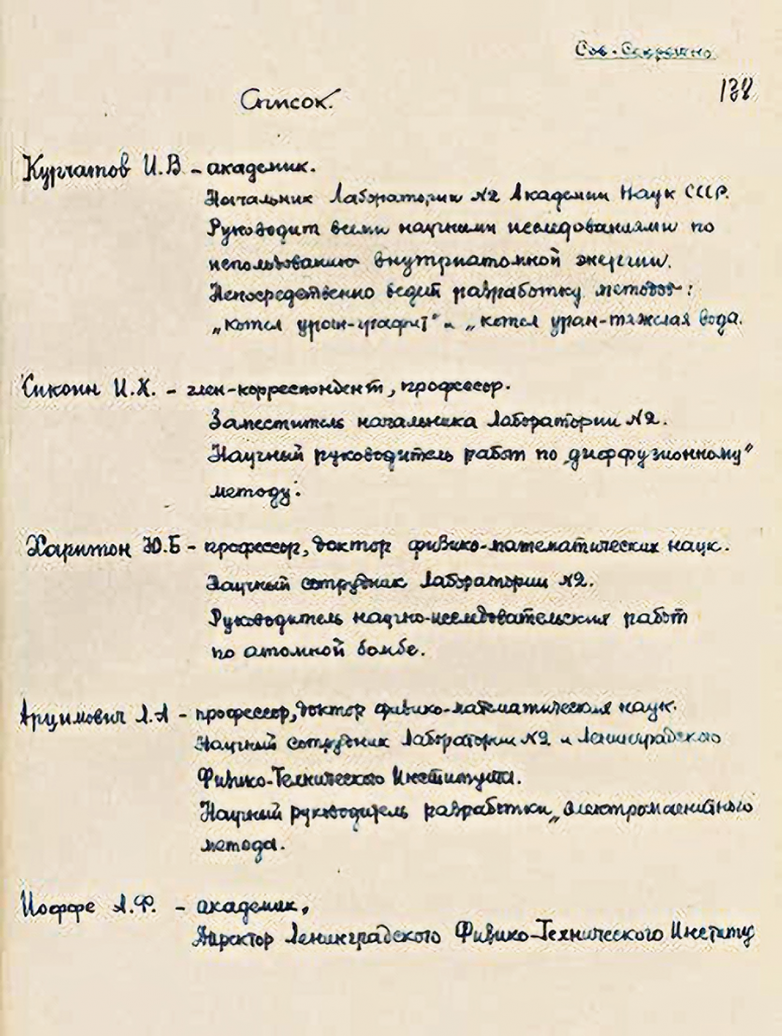 Сов. Секретно
138
Список.
Курчатов И.В – академик.
Начальник Лаборатории №2 Академии Наук СССР.
Руководит всеми научными исследованиями по
использованию внутриатомной энергии.
Непосредственно ведет разработку методов:
„котел уран-графит" и „котел уран-тяжелая вода.
Кикоин И.К. – член-корреспондент, профессор.
Заместитель начальника Лаборатории №2.
Научный руководитель работ по „диффузионному"
методу.
Харитон Ю.Б – профессор, доктор физико-математических наук.
Научный сотрудник Лаборатории №2.
Руководитель научно-исследовательских работ
по атомной бомбе.
Арцимович Л.А – профессор, доктор физико-математических наук.
Научный сотрудник Лаборатории №2 и Ленинградского
Физико-Технического Института.
Научный руководитель разработки „электромагнитного
метода.
Иоффе А.Ф. – академик,
Директор Ленинградского Физико-Технического Институ